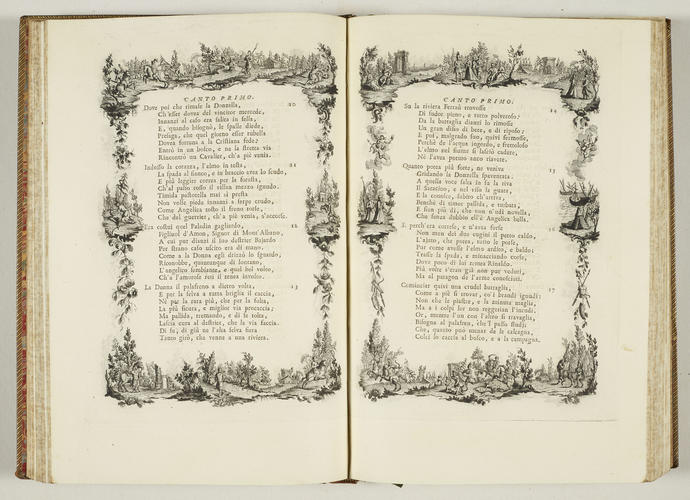 CANTO PRIMO.
Dove poi che rimase la Donzella, 10
Ch'esser dovea del vincitor mercede,
Innanzi al caso era salita in sella,
E, quando bisognò, le spalle diede,
Presaga, che quel giorno esser rubella
Dovea fortuna a la Cristiana fede:
Entrò in un bosco, e ne la stretta via
Rincontrò un Cavalier, ch'a piè venia.
Indosso la corazza, l'elmo in testa, 11
La spada al fianco, e in braccio avea lo scudo,
E più leggier correa per la foresta,
Ch'al palio rosso il villan mezzo ignudo.
Timida pastorella mai sì presta
Non volse piede innanzi a serpe crudo,
Come Angelica tosto il freno torse,
Che del guerrier, ch'a piè venia, s'accorse.
Era costui quel Paladin gagliardo, 12
Figliuol d'Amon, Signor di Mont'Albano,
A cui pur dianzi il suo destrier Bajardo
Per strano caso uscito era di mano.
Come a la Donna egli drizzò lo sguardo,
Riconobbe, quantunque di lontano,
L'angelico sembiante, e quel bel volto,
Ch'a l'amorose reti il tenea involto.
La Donna il palafreno a dietro volta, 13
E per la selva a tutta briglia il caccia,
Nè per la rara più, che per la folta,
La più sicura, e miglior via procaccia;
Ma pallida, tremando, e di se tolta,
Lascia cura al destrier, che la via faccia.
Di su, di giù ne l'alta selva fiera
Tanto girò, che venne a una riviera.
CANTO PRIMO.
Su la riviera Ferraù trovosse 14
Di sudor pieno, e tutto polveroso:
Da la battaglia dianzi lo rimosse
Un gran disio di bere, e di riposo:
E poi, malgrado suo, quivi fermosse,
Perchè de l'acqua ingordo, e frettoloso
L'elmo nel fiume si lasciò cadere,
Nè l'avea potuto anco riavere.
Quanto potea più forte, ne veniva 15
Gridando la Donzella spaventata.
A quella voce salta in su la riva
Il Saracino, e nel viso la guata,
E la conosce, subito ch'arriva,
Benchè di timor pallida, e turbata,
E sien più dì, che non n'udì novella,
Che senza dubbio ell'è Angelica bella.
E perch'era cortese, e n'avea forse 16
Non men dei duo cugini il petto caldo,
L'ajuto, che potea, tutto le porse,
Pur come avesse l'elmo ardito, e baldo:
Trasse la spada, e minacciando corse,
Dove poco di lui temea Rinaldo.
Più volte s'eran già non pur veduti,
Ma al paragon de l'arme conosciuti.
Cominciar quivi una crudel battaglia, 17
Come a piè si trovar, co' i brandi ignudi:
Non che le piastre, e la minuta maglia,
Ma a i colpi lor non reggerian l'incudi.
Or, mentre l'un con l'altro si travaglia,
Bisogna al palafren, che'l passo studj:
Che, quanto può menar de le calcagna,
Colei lo caccia al bosco, e a la campagna.